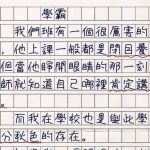 學霸
我們班有一個很厲害的
他上課一般都是閉目養
但當他睜開眼睛的那一刻
師就知道自己哪裡肯定講
而我在學校也是與此學
分秋色的存在。